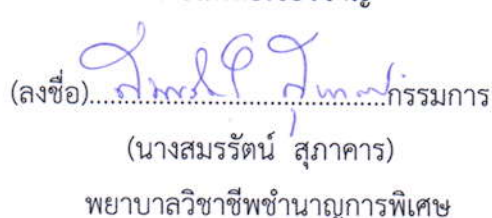 (ลงชื่อ)........................................กรรมการ
(นางสมรรัตน์ สุภาคาร)
พยาบาลวิชาชีพชำนาญการพิเศษ